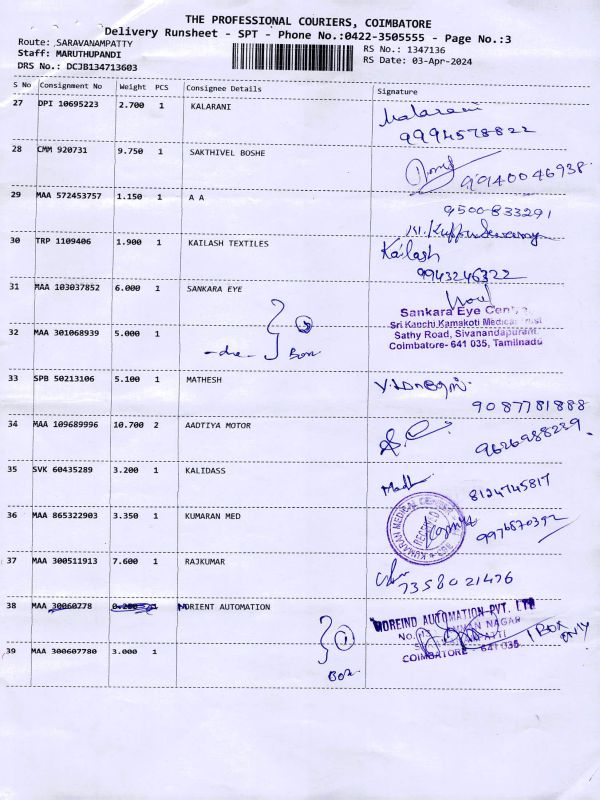 THE PROFESSIONAL COURIERS, COIMBATORE
Delivery Runsheet - SPT - Phone No.:0422-3505555 - Page No.:3
Route: SARAVANAMPATTY
Staff: MARUTHUPANDI
DRS No.: DCJB134713603
RS No.: 1347136
RS Date: 03-Apr-2024
S No Consignment No Weight PCS Consignee Details Signature
27 DPI 10695223 2.700 1 KALARANI Kalarani
9994578822
28 CMM 920731 9.750 1 SAKTHIVEL BOSHE
99140046938
29 MAA 572453757 1.150 1 A A 9500833291
30 TRP 1109406 1.900 1 KAILASH TEXTILES Kailash
9943246322
31 MAA 103037852 6.000 1 SANKARA EYE
Sankara Eye Centre
Sri Kanchi Kamakoti Medical Trust
Sathy Road, Sivanandapuram
Coimbatore- 641 035, Tamilnadu
32 MAA 301068939 5.000 1 -do- 2 Box
33 SPB 50213106 5.100 1 MATHESH
9087781888
34 MAA 109689996 10.700 2 AADTIYA MOTOR
9626988239
35 SVK 60435289 3.200 1 KALIDASS Madh
8124745817
36 MAA 865322903 3.350 1 KUMARAN MED
KUMARAN MEDICAL CENTRE
9976870392
37 MAA 300511913 7.600 1 RAJKUMAR
7358021476
38 MAA 30060778 0.200 NORIENT AUTOMATION
NOREIND AUTOMATION PVT. LTD
NAGAR
COIMBATORE - 641 035
1 BOX ONLY
39 MAA 300607780 3.000 1 1 Box